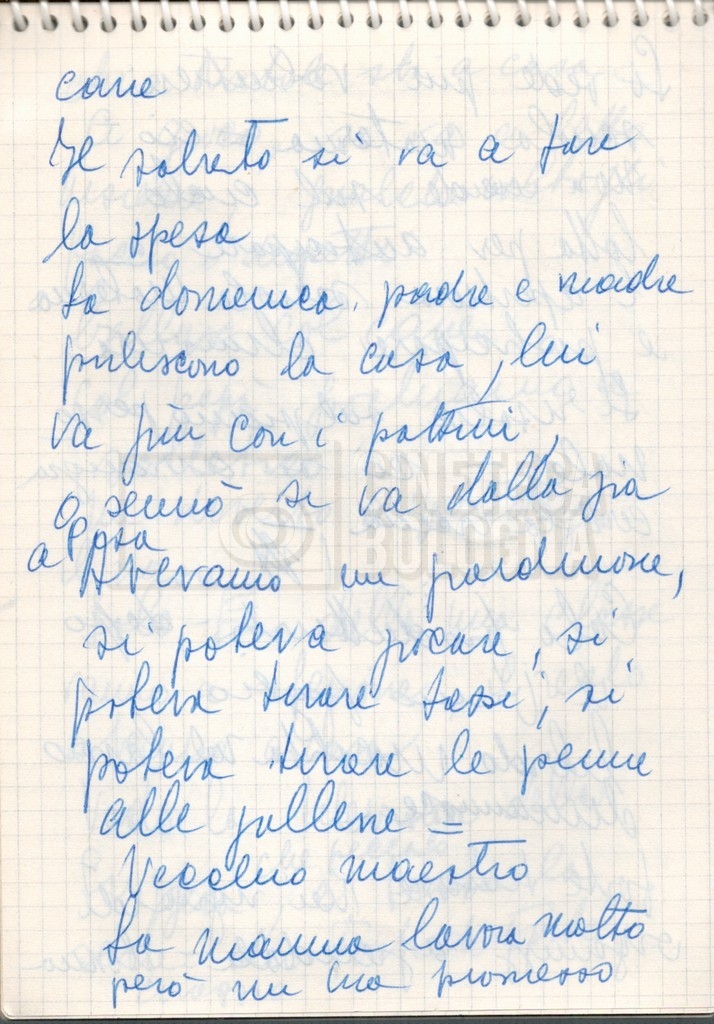 cane
Il sabato si va a fare
la spesa
La domenica, padre e madre
puliscono la casa, lui
va giù con i pattini,
o sennò si va dalla zia
a Pisa
Avevamo un giardinone,
si poteva giocare, si
poteva tirare sassi, si
poteva tirare le penne
alle galline =
Vecchio maestro
La mamma lavora molto
però mi ha promesso
CINETECA
BOLOGNA